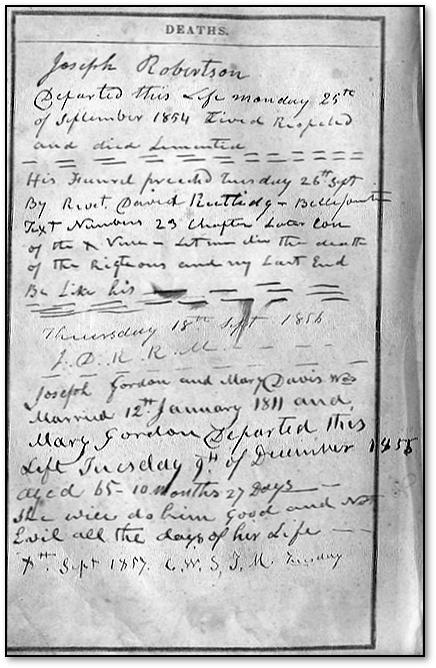 DEATHS.
Joseph Robertson
Departed this Life monday 25th
of September 1854 Lived Respeted
and died Limented
His Funrel preched Tuesday 26th Sept
By Revt. David Rutlidg - Bellefonte
Text Numbers 23 Chapter Later
of the X Verse - Let me die the death
of the Righteous and my Last End
Be Like his
Thuersday 18th Sept 1856
J. D. R. R. M
Joseph Gordon and Mary Davis was
Married 12th January 1811 and
Mary Gordon Departed this
Left Tuesday 9th of December 1856
aged 65 - 10 months 27 Days
She will do him Good and Not
Evil all the days of her Life
Sept 1857. C. W. S. J. M. Tuesday